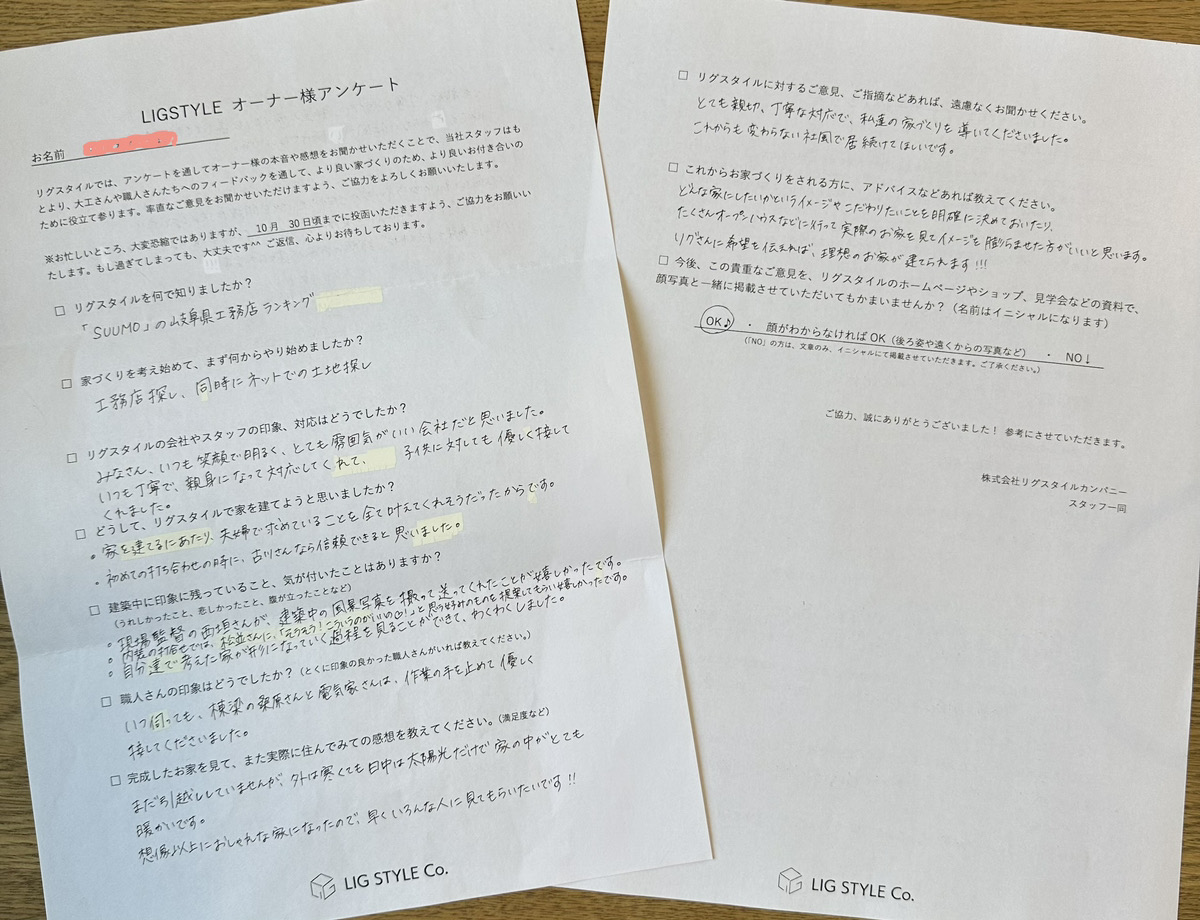 LIGSTYLE オーナー様アンケート
お名前
リグスタイルでは、アンケートを通してオーナー様の本音や感想をお聞かせいただくことで、当社スタッフはも
とより、大工さんや職人さんたちへのフィードバックを通して、より良い家づくりのため、より良いお付き合いの
ために役立て参ります。率直なご意見をお聞かせいただけますよう、ご協力をよろしくお願いいたします。
※お忙しいところ、大変恐縮ではありますが、 10月 30日頃までに投函いただきますよう、ご協力をお願いい
たします。もし過ぎてしまっても、大丈夫です^^ ご返信、心よりお待ちしております。
□ リグスタイルを何で知りましたか？
「SUUMO」の岐阜県工務店ランキング
□ 家づくりを考え始めて、まず何からやり始めましたか？
工務店探し、同時にネットでの土地探し
□ リグスタイルの会社やスタッフの印象、対応はどうでしたか？
みなさん、いつも笑顔で明るく、とても雰囲気がいい会社だと思いました。
いつも丁寧で、親身になって対応してくれて、 子供に対しても優しく接して
くれました。
□ どうして、リグスタイルで家を建てようと思いましたか？
・家を建てるにあたり、夫婦で求めていることを全て叶えてくれそうだったからです。
・初めての打ち合わせの時に、古川さんなら信頼できると思いました。
□ 建築中に印象に残っていること、気が付いたことはありますか？
（うれしかったこと、悲しかったこと、腹が立ったことなど）
・現場監督の西垣さんが、建築中の風景写真を撮って送ってくれたことが嬉しかったです。
・内装の打合せでは、松並さんに、「そうそう！こういうのがいいの♡！」と思う好みのものを提案してもらい嬉しかったです。
・自分達で考えた家が形になっていく過程を見ることができて、わくわくしました。
□ 職人さんの印象はどうでしたか？（とくに印象の良かった職人さんがいれば教えてください。）
いつ伺っても、棟梁の桑原さんと電気家さんは、作業の手を止めて優しく
接してくださいました。
□ 完成したお家を見て、また実際に住んでみての感想を教えてください。（満足度など）
まだ引越ししていませんが、外は寒くても日中は太陽光だけで家の中がとても
暖かいです。
想像以上におしゃれな家になったので、早くいろんな人に見てもらいたいです!!
LIG STYLE Co.
□ リグスタイルに対するご意見、ご指摘などあれば、遠慮なくお聞かせください。
とても親切、丁寧な対応で、私達の家づくりを導いてくださいました。
これからも変わらない社風で居続けてほしいです。
□ これからお家づくりをされる方に、アドバイスなどあれば教えてください。
どんな家にしたいかというイメージやこだわりたいことを明確に決めておいたり、
たくさんオープンハウスなどに行って実際のお家を見てイメージを膨らませた方がいいと思います。
リグさんに希望を伝えれば、理想のお家が建てられます!!!
□ 今後、この貴重なご意見を、リグスタイルのホームページやショップ、見学会などの資料で、
顔写真と一緒に掲載させていただいてもかまいませんか？（名前はイニシャルになります）
OK♪ ・ 顔がわからなければ OK（後ろ姿や遠くからの写真など） ・ NO↓
（「NO」の方は、文章のみ、イニシャルにて掲載させていただきます。ご了承ください。）
ご協力、誠にありがとうございました！ 参考にさせていただきます。
株式会社リグスタイルカンパニー
スタッフ一同
LIG STYLE Co.